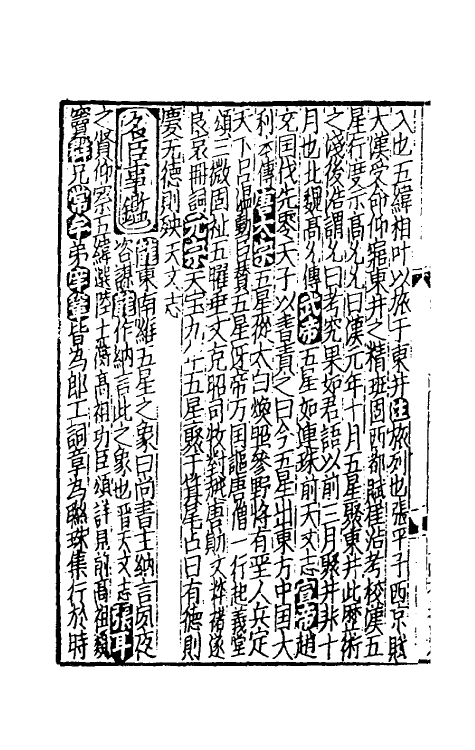 入也五緯相叶以旅于東井注旅列也張平子西京賦
大漢受命仰寤東井之精班固西都賦崔浩考校漢五
星行度示高允允曰漢元年十月五星聚東井此歷術
之淺後浩謂允曰考究果如君語以前三月聚井非十
月也北魏高允傳武帝五星如連珠前天文志宣帝趙
充国伐先零天子以書責之曰今五星出東方中国大
利充傳唐太宗五星從太白煥照參野將有聖人兵定
天下呂温勳臣賛五星從帝方国謳唐僧一行也義堂
頌三微固祉五曜垂文克昭司牧對越唐勛文粹禇遂
良哀冊詞元宗天宝九上五星聚于箕尾占曰有德則
慶无德則殃天文志
名臣事鑑龍東南維五星之象曰尚書主納言夙夜
咨謀龍作納言此之象也晋天文志張耳
之賢仰察五緯選陸士衡高祖功臣頌詳見前高祖類
竇群兄常牟弟庠鞏皆為郎工詞章為聯珠集行於時